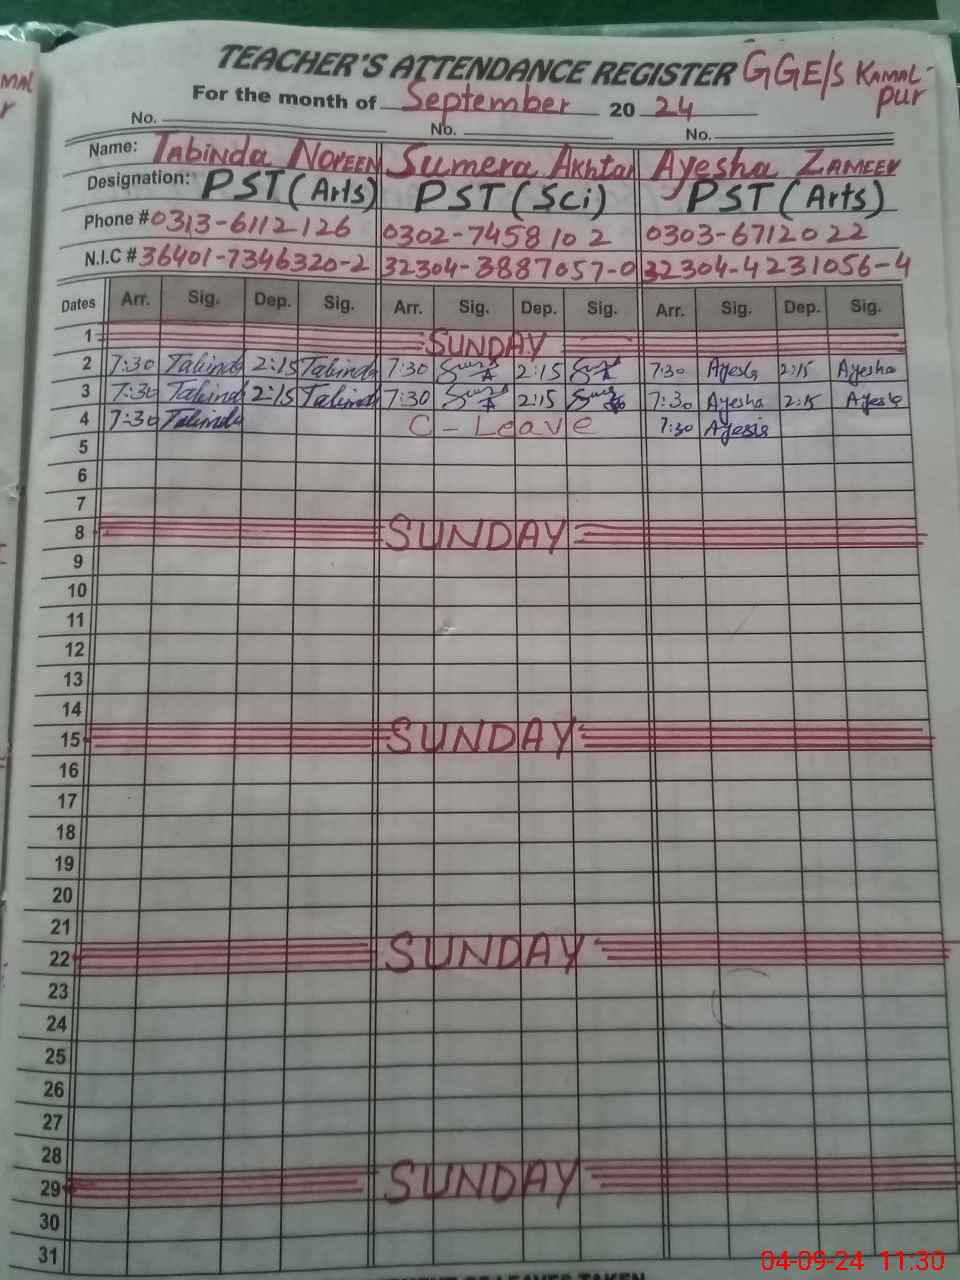 MAL
r
TEACHER'S ATTENDANCE REGISTER GGE/S KAMAL-
PUR
For the month of September 2024
No. No. No.
Name: TABINDA NOREEN Sumera Akhtar Ayesha ZAMEER
Designation: PST (Arts) PST (Sci) PST (Arts)
Phone # 0313-6112126 0302-7458102 0303-6712022
N.I.C # 36401-7346320-2 32304-3887057-0 32304-4231056-4
Dates Arr. Sig. Dep. Sig. Arr. Sig. Dep. Sig. Arr. Sig. Dep. Sig.
1 SUNDAY
2 7:30 Tabinda 2:15 Tabinda 7:30 2:15 7:30 Ayesha 2:15 Ayesha
3 7:30 Tabinda 2:15 Tabinda 7:30 2:15 7:30 Ayesha 2:15 Ayesha
4 7:30 Tabinda C-Leave 7:30 Ayesha
5
6
7
8 SUNDAY
9
10
11
12
13
14
15 SUNDAY
16
17
18
19
20
21
22 SUNDAY
23
24
25
26
27
28
29 SUNDAY
30
31
OF LEAVES TAKEN
04-09-24 11:30